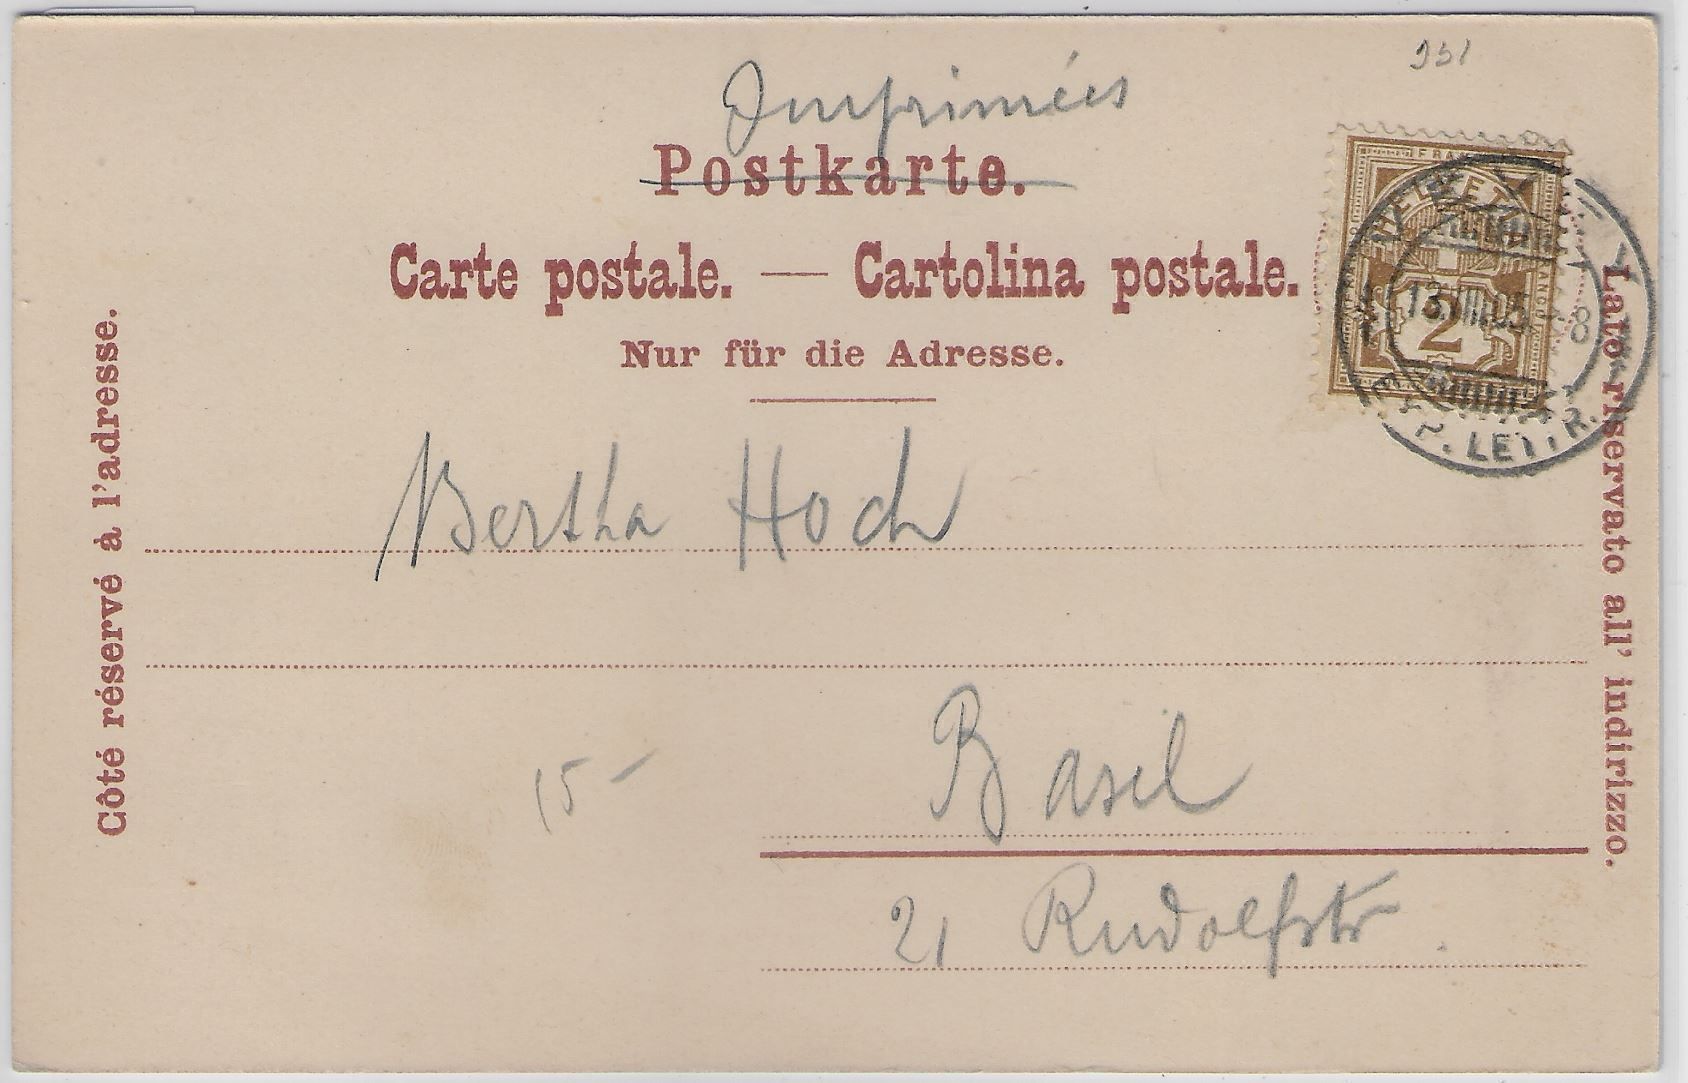 951
Imprimées
Postkarte.
Carte postale. — Cartolina postale.
Nur für die Adresse.
Côté réservé à l'adresse.
Lato riservato all' indirizzo.
FRANCO
HELVETIA
2
13.VIII.05.–8
EXP. LETTR.
Bertha Hoch
Basel
15 –
21 Rudolfstr.